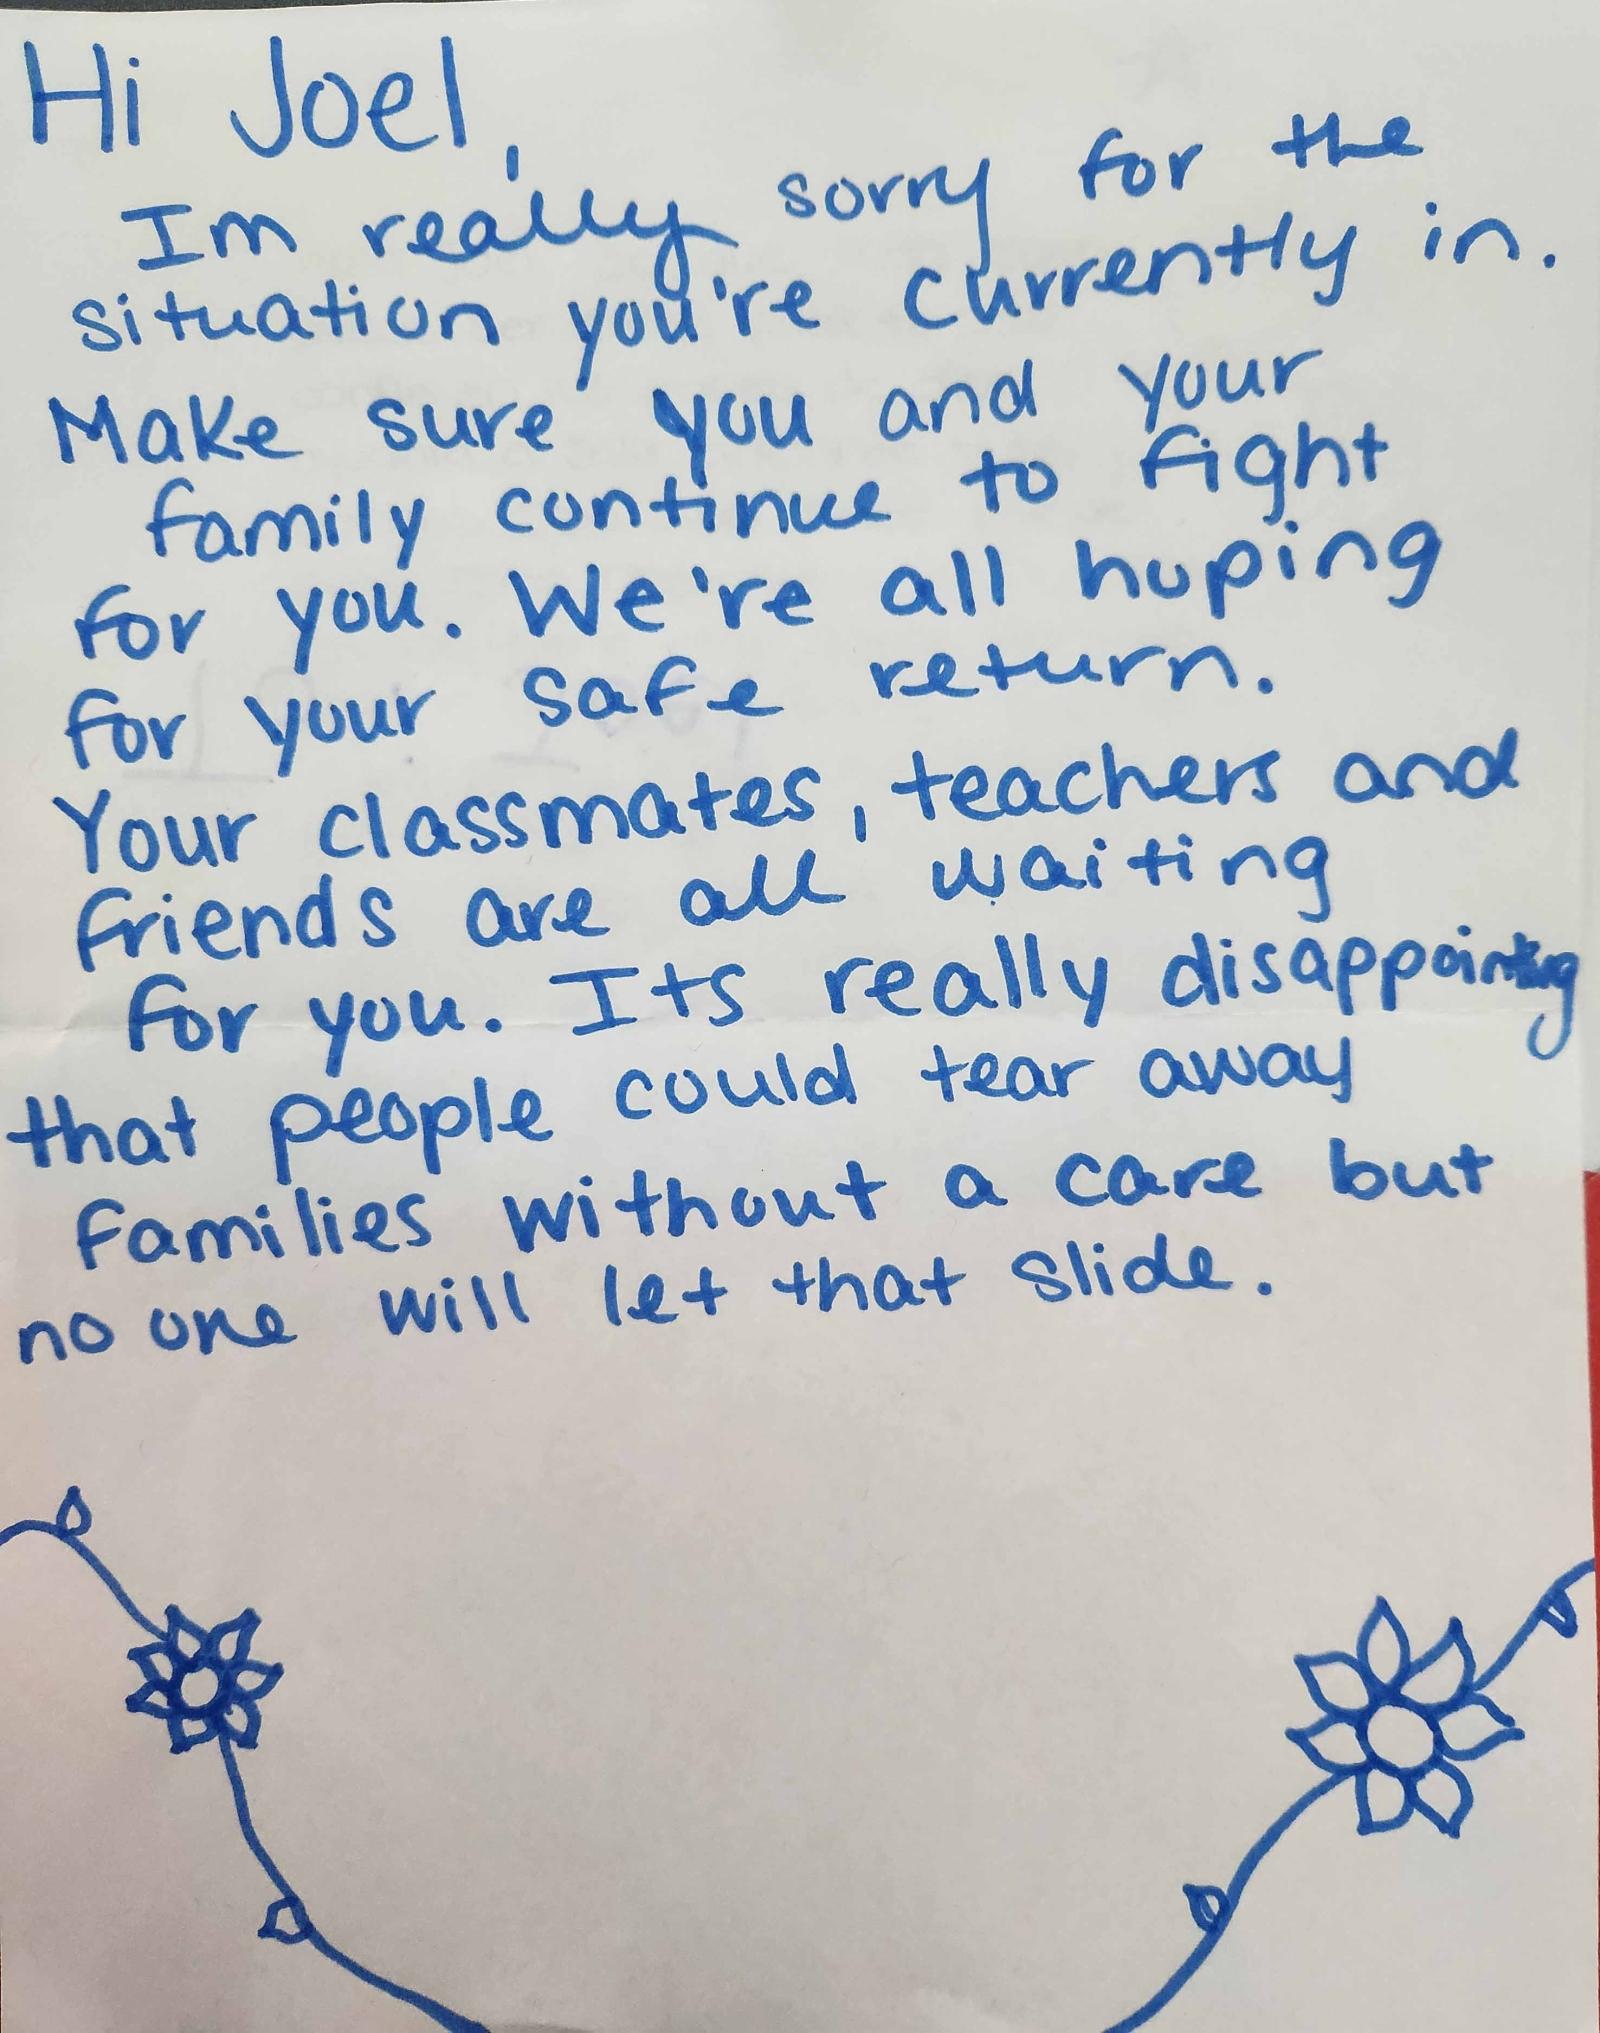 Hi Joel,
Im really sorry for the
situation you're currently in.
Make sure you and your
family continue to fight
for you. We're all hoping
for your safe return.
Your classmates, teachers and
friends are all waiting
for you. Its really disappointing
that people could tear away
families without a care but
no one will let that slide.